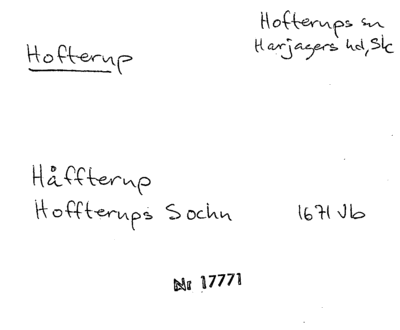 Hofterup
Hofterups sn
Harjagers hd, Sk
Håffterup
Hoffterups Sochn 1671 Jb
Nr 17771